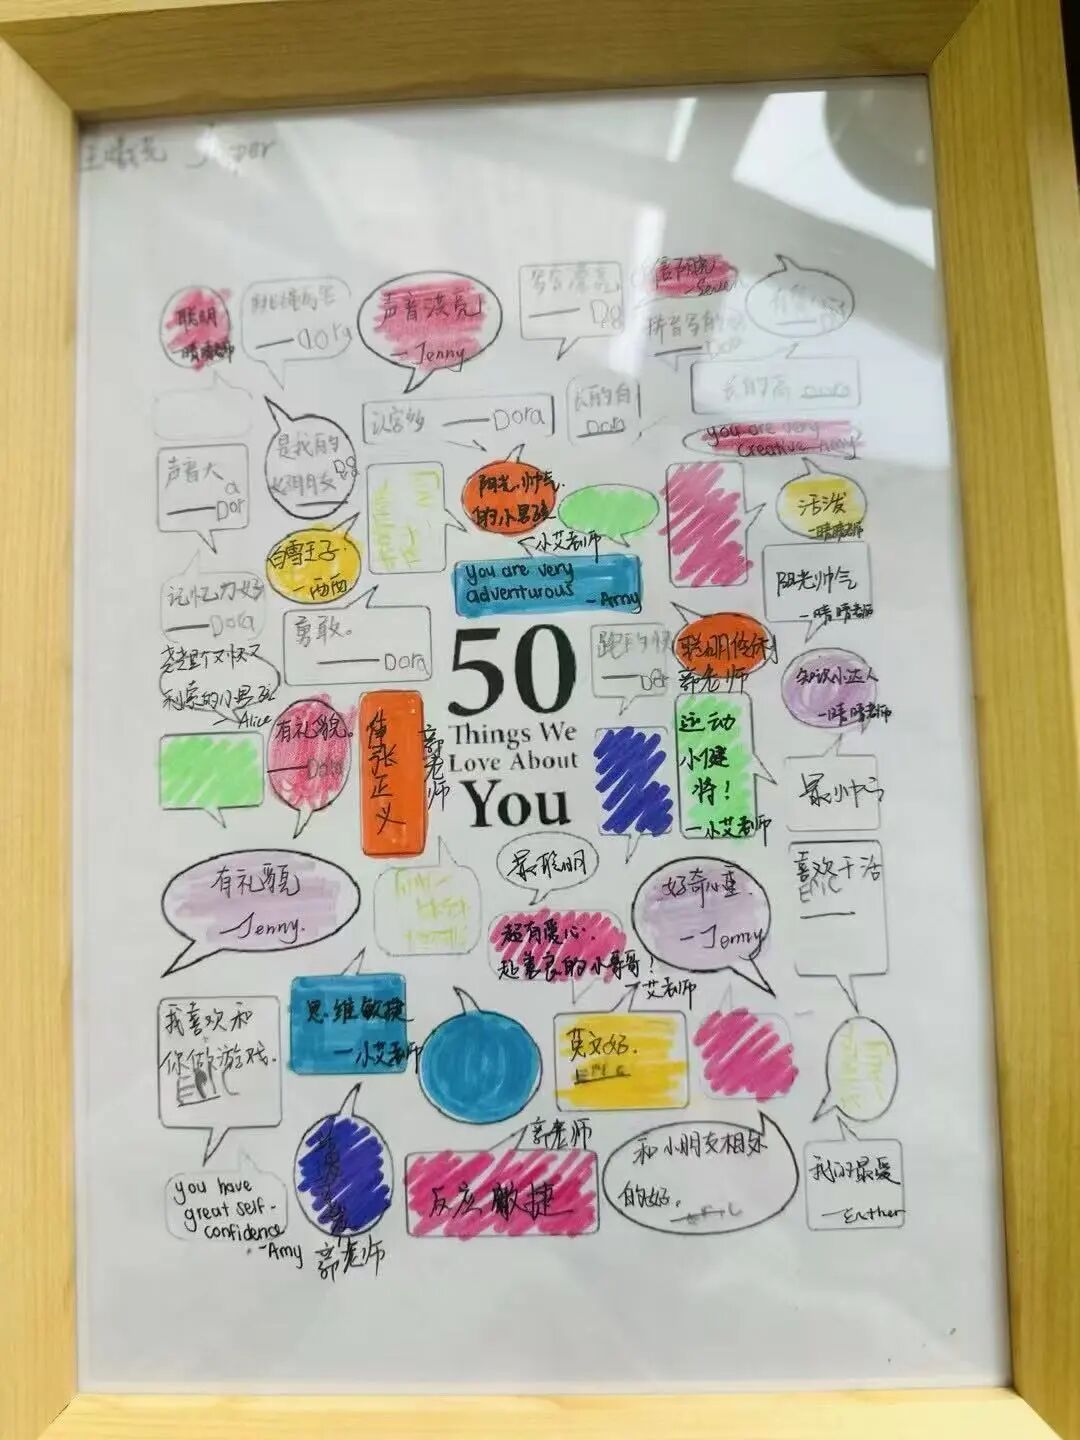 聪明
—晴晴老师
——Dora
声音洪亮!
—Jenny
——Do
—Seven
拼音写的
长的高 Dora
——Dora
长的白
Dora
you are very
Creative -Amy
声音大
——Dor
a
是我的
好朋友
阳光.帅气.
的小男孩
—小艾老师
活泼
—晴晴老师
白雪王子.
—西西
you are very
adventurous -Amy
阳光帅气
—晴晴老师
记忆力好
——Dora
勇敢。
——Dora
跑的快
郭老师
又快又
利索的小男孩
—Alice
知识小达人
—晴晴老师
有礼貌。
——Dora
伸张正义
郭老师
50
Things We
Love About
You
运动
小健
将!
—小艾老师
最帅气
有礼貌
—Jenny.
最聪明
好奇小童.
—Jenny
喜欢干活
ERIC
超有爱心.
超善良的小哥哥!
—艾老师
我喜欢和
你做游戏.
ERIC
思维敏捷
—小艾老师
英文好.
ERIC
you have
great self-
confidence
-Amy
郭老师
郭老师
反应敏捷
和小朋友相处
的好.
我们最爱
—Esther